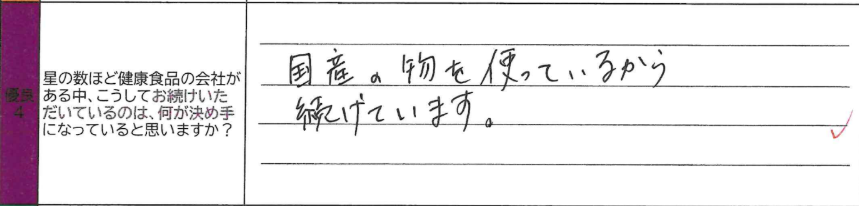 優良
4
星の数ほど健康食品の会社が
ある中、こうしてお続けいた
だいているのは、何が決め手
になっていると思いますか？
国産の物を使っているから
続けています。